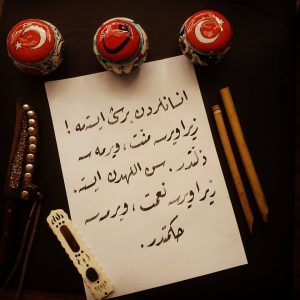 انسانلردن برشی ایستمه !
زیرا ویرسه منت ، ویرمه سه
ذلتدر . سن اللهدن ایسته .
زیرا ویرسه نعمت ، ویرمه سه
حکمتدر .